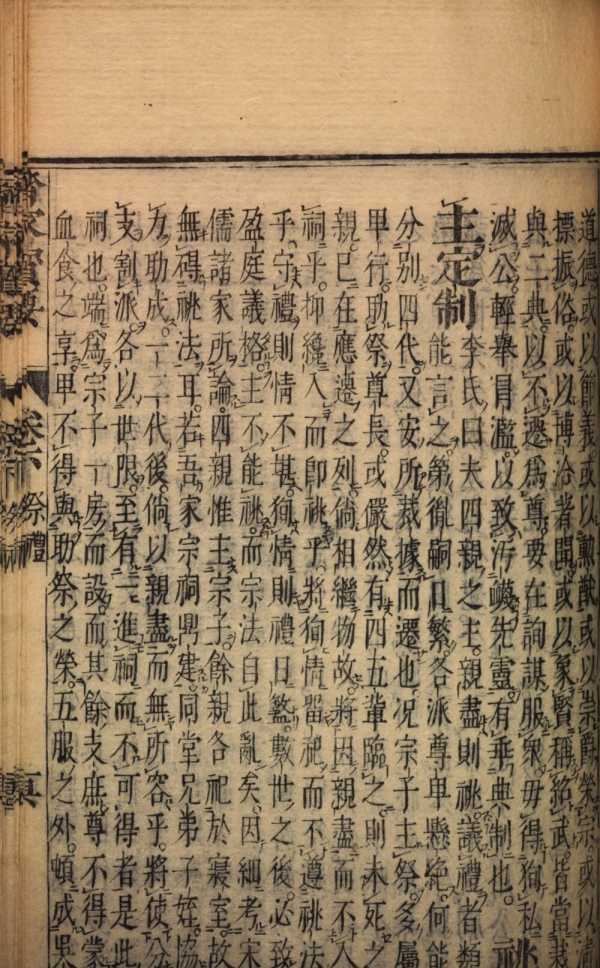 道德或以節義或以勲猷或以崇爵榮宗或以
標振俗或以博洽著聞或以象賢稱紹武皆當
與二典以不遷為尊要在詢謀服衆毋得狥私
滅公輕舉冒濫以致汚衊先靈有垂典制也祧
主定制李氏曰夫四親之主親盡則祧議禮者類
能言之第胤嗣日繁各派尊卑懸絶何能
分别四代又安所裁據而遷也况宗子主祭多屬
卑行助祭尊長或儼然有四五輩臨之則未死之
親已在應遷之列倘相繼物故將因親盡而不入
祠乎抑纔入而卽祧乎將狥情留祀而不遵祧法
乎守禮則情不堪狥情則禮日蠧數世之後必致
盈庭議格主不能祧而宗法自此亂矣因細考宋
儒諸家所論四親惟主宗子餘親各祀於寢室故
無得祧法耳若吾家宗祠鼎建同堂兄弟子姪協
力助成一二代後倘以親盡而無所容乎將使分
支割派各以世限至有一二進祠而不可得者是此
祠也端爲宗子一房而設而其餘支庶尊不得蒙
血食之享卑不得與助祭之榮五服之外頓成吳
齊家寶要
卷六
祭禮